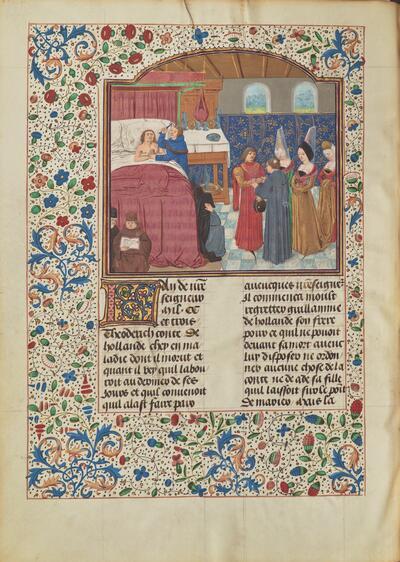 LAn de nr̃e
seigneur
mil. CC
et trois
Theoderich conte de
hollande chey en ma
ladie dont il morut et
quant il vey quil abou
toit au de ses
jours et quil convenoit
quil alast faire paix
avecques nr̃e seigneur
Il commenca moult
regretter guillamme
de hollande son frere
pour ce quil ne pouoit
devant sa mort avecuc
luy disposer ne ordon
ner aucune chose de la
conte ne de ade sa fille
quil laissoit sur le poĩt
de marier. Mais la